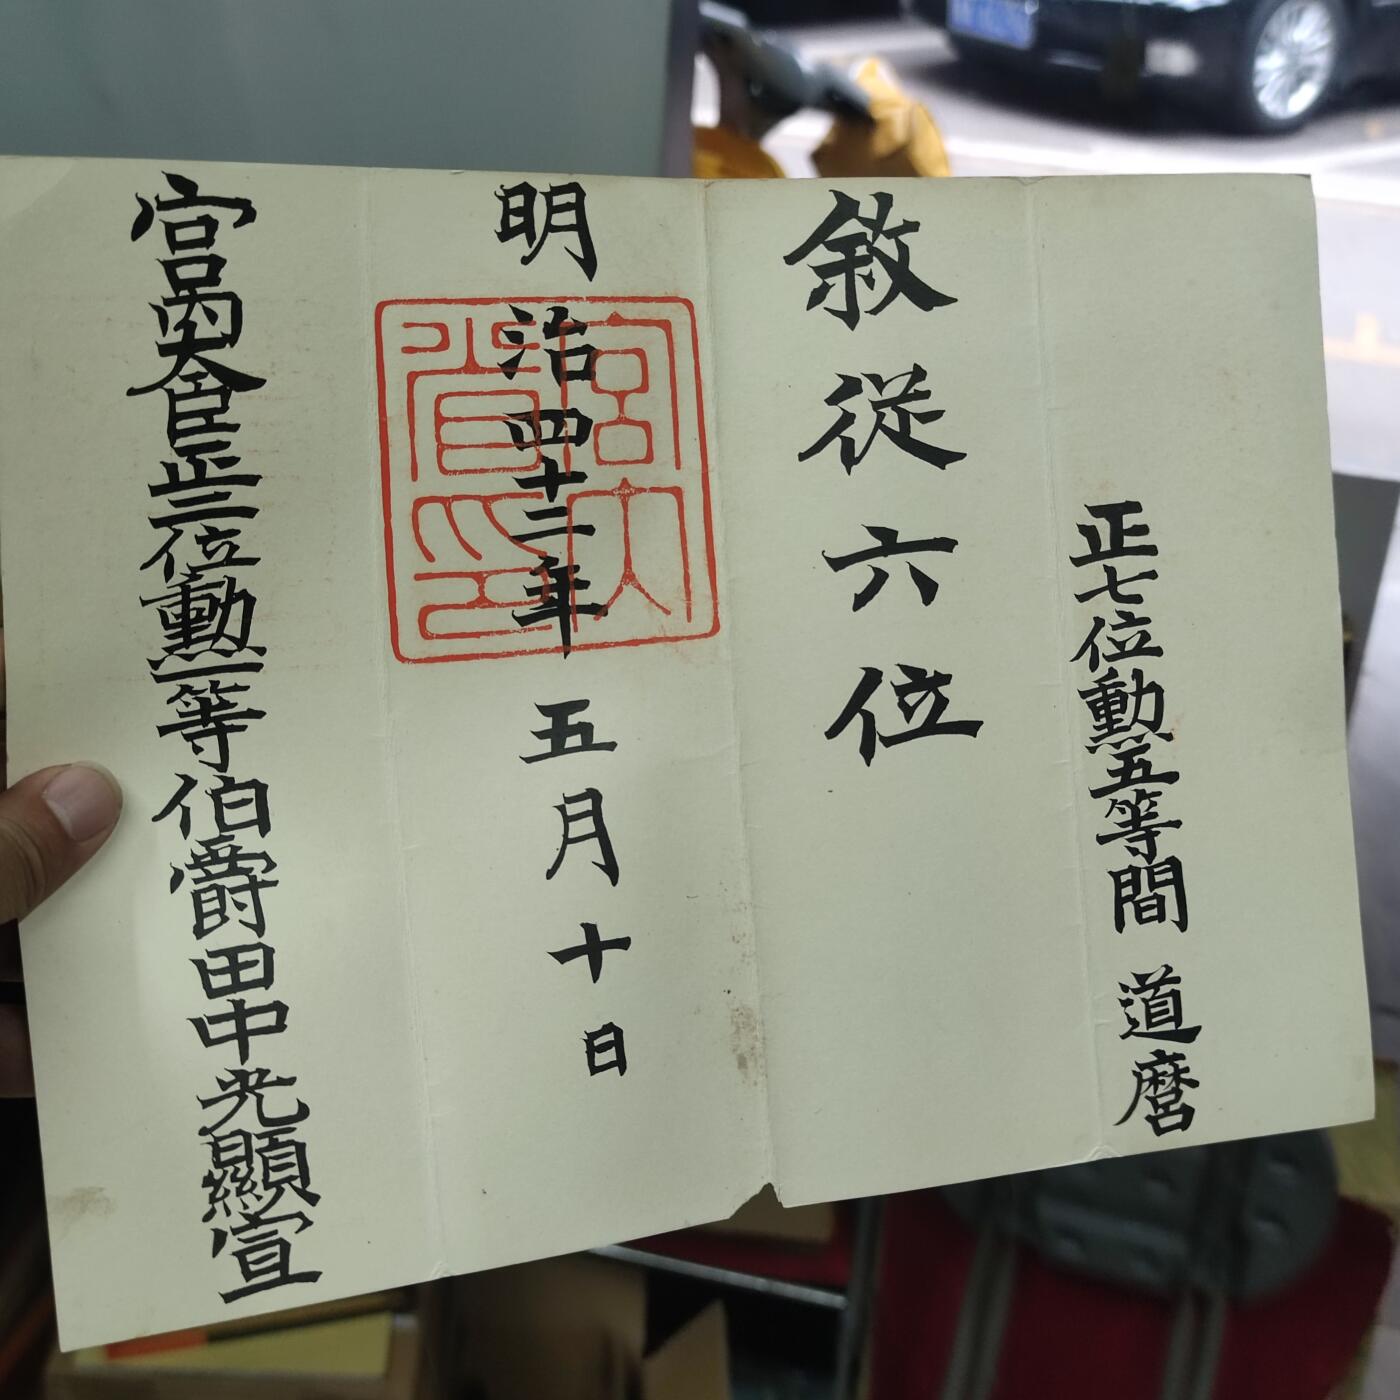 正七位勳五等間 道麿
敘從六位
明治四十二年五月十日
宮內省印
宮內大臣正二位勳一等伯爵田中光顯宣